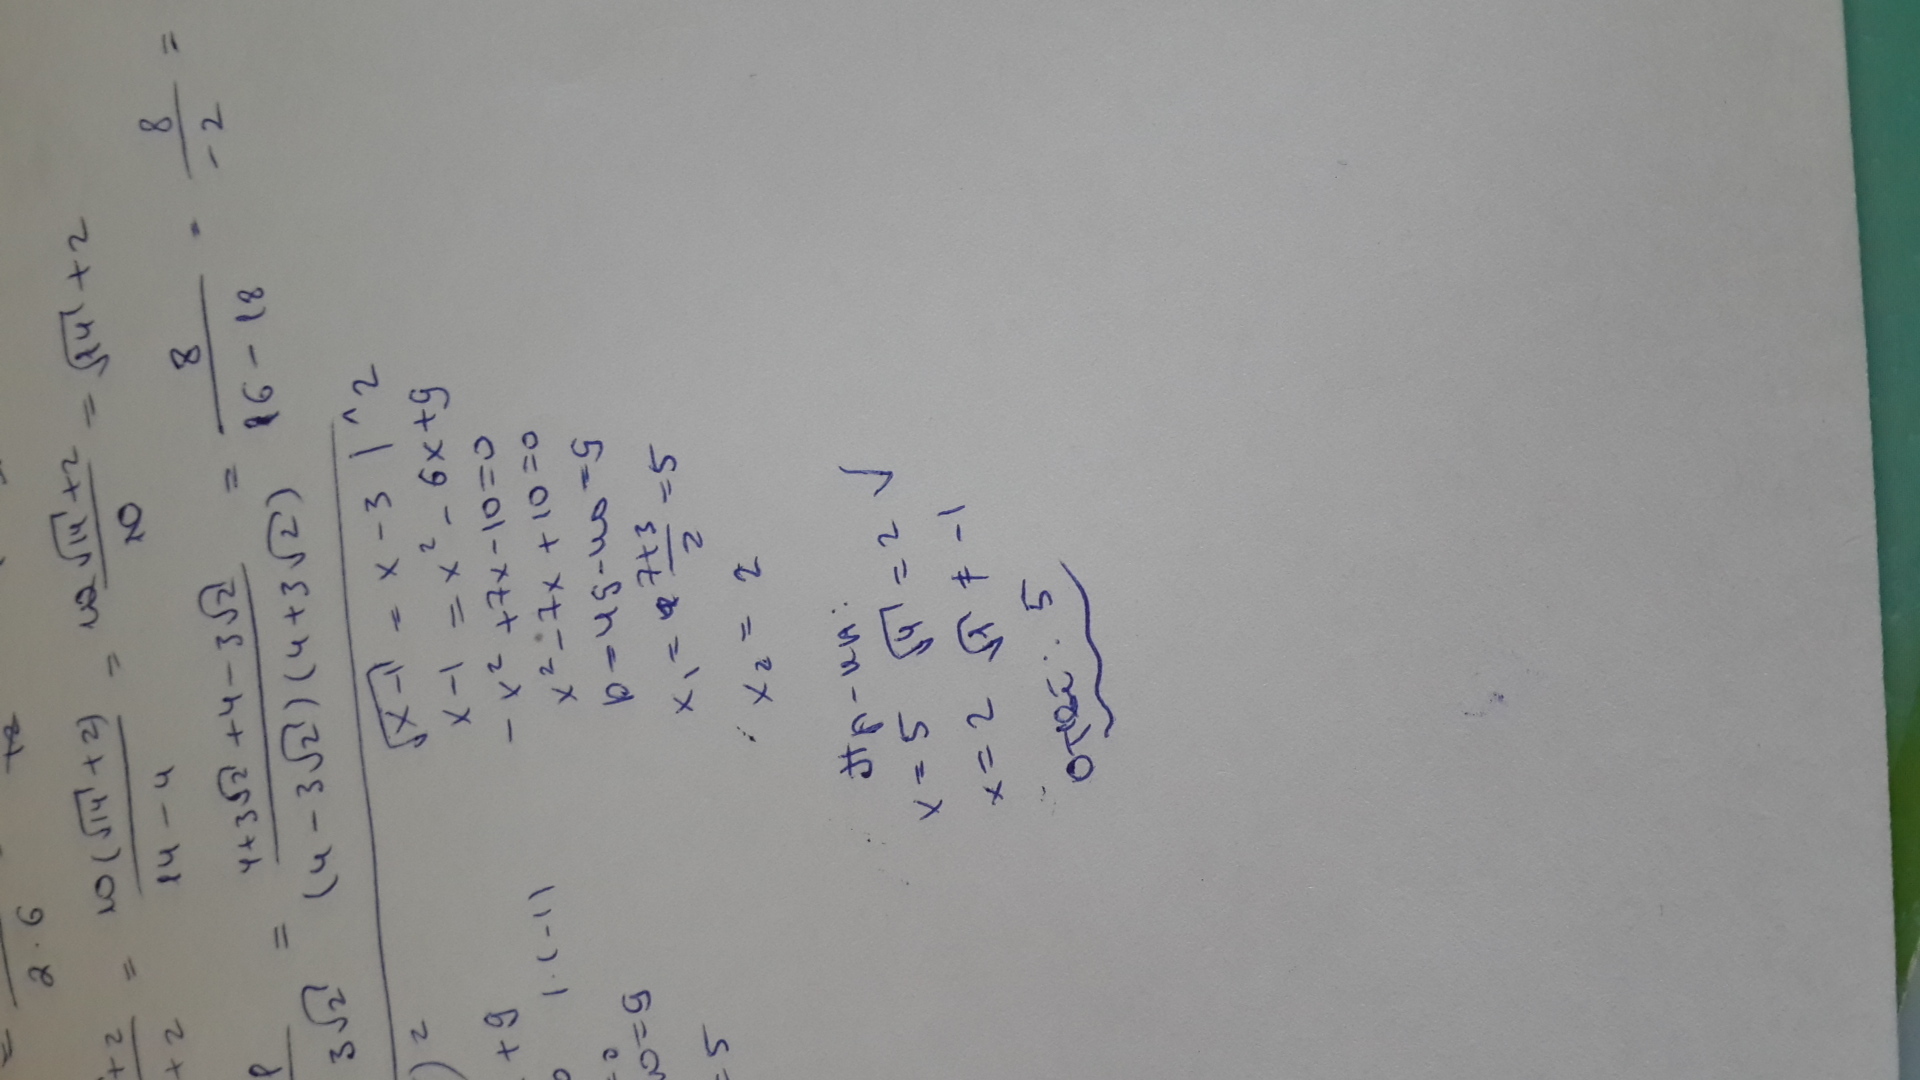 2·6
10(√14+2) / 14-4 = 10√14+2 / 10 = √14+2
3√2 = 4+3√2+4-3√2 / (4-3√2)(4+3√2) = 8 / 16-18 = 8 / -2 =
√x-1 = x-3 |^2
x-1 = x²-6x+9
-x²+7x-10=0
x²-7x+10=0
D=49-40=9
x₁= 7+3 / 2 =5
x₂=2
Пр-ка:
x=5 √4=2 ✓
x=2 √1≠-1
Ответ: 5
)²
+9
|·(-1)
=9
=5